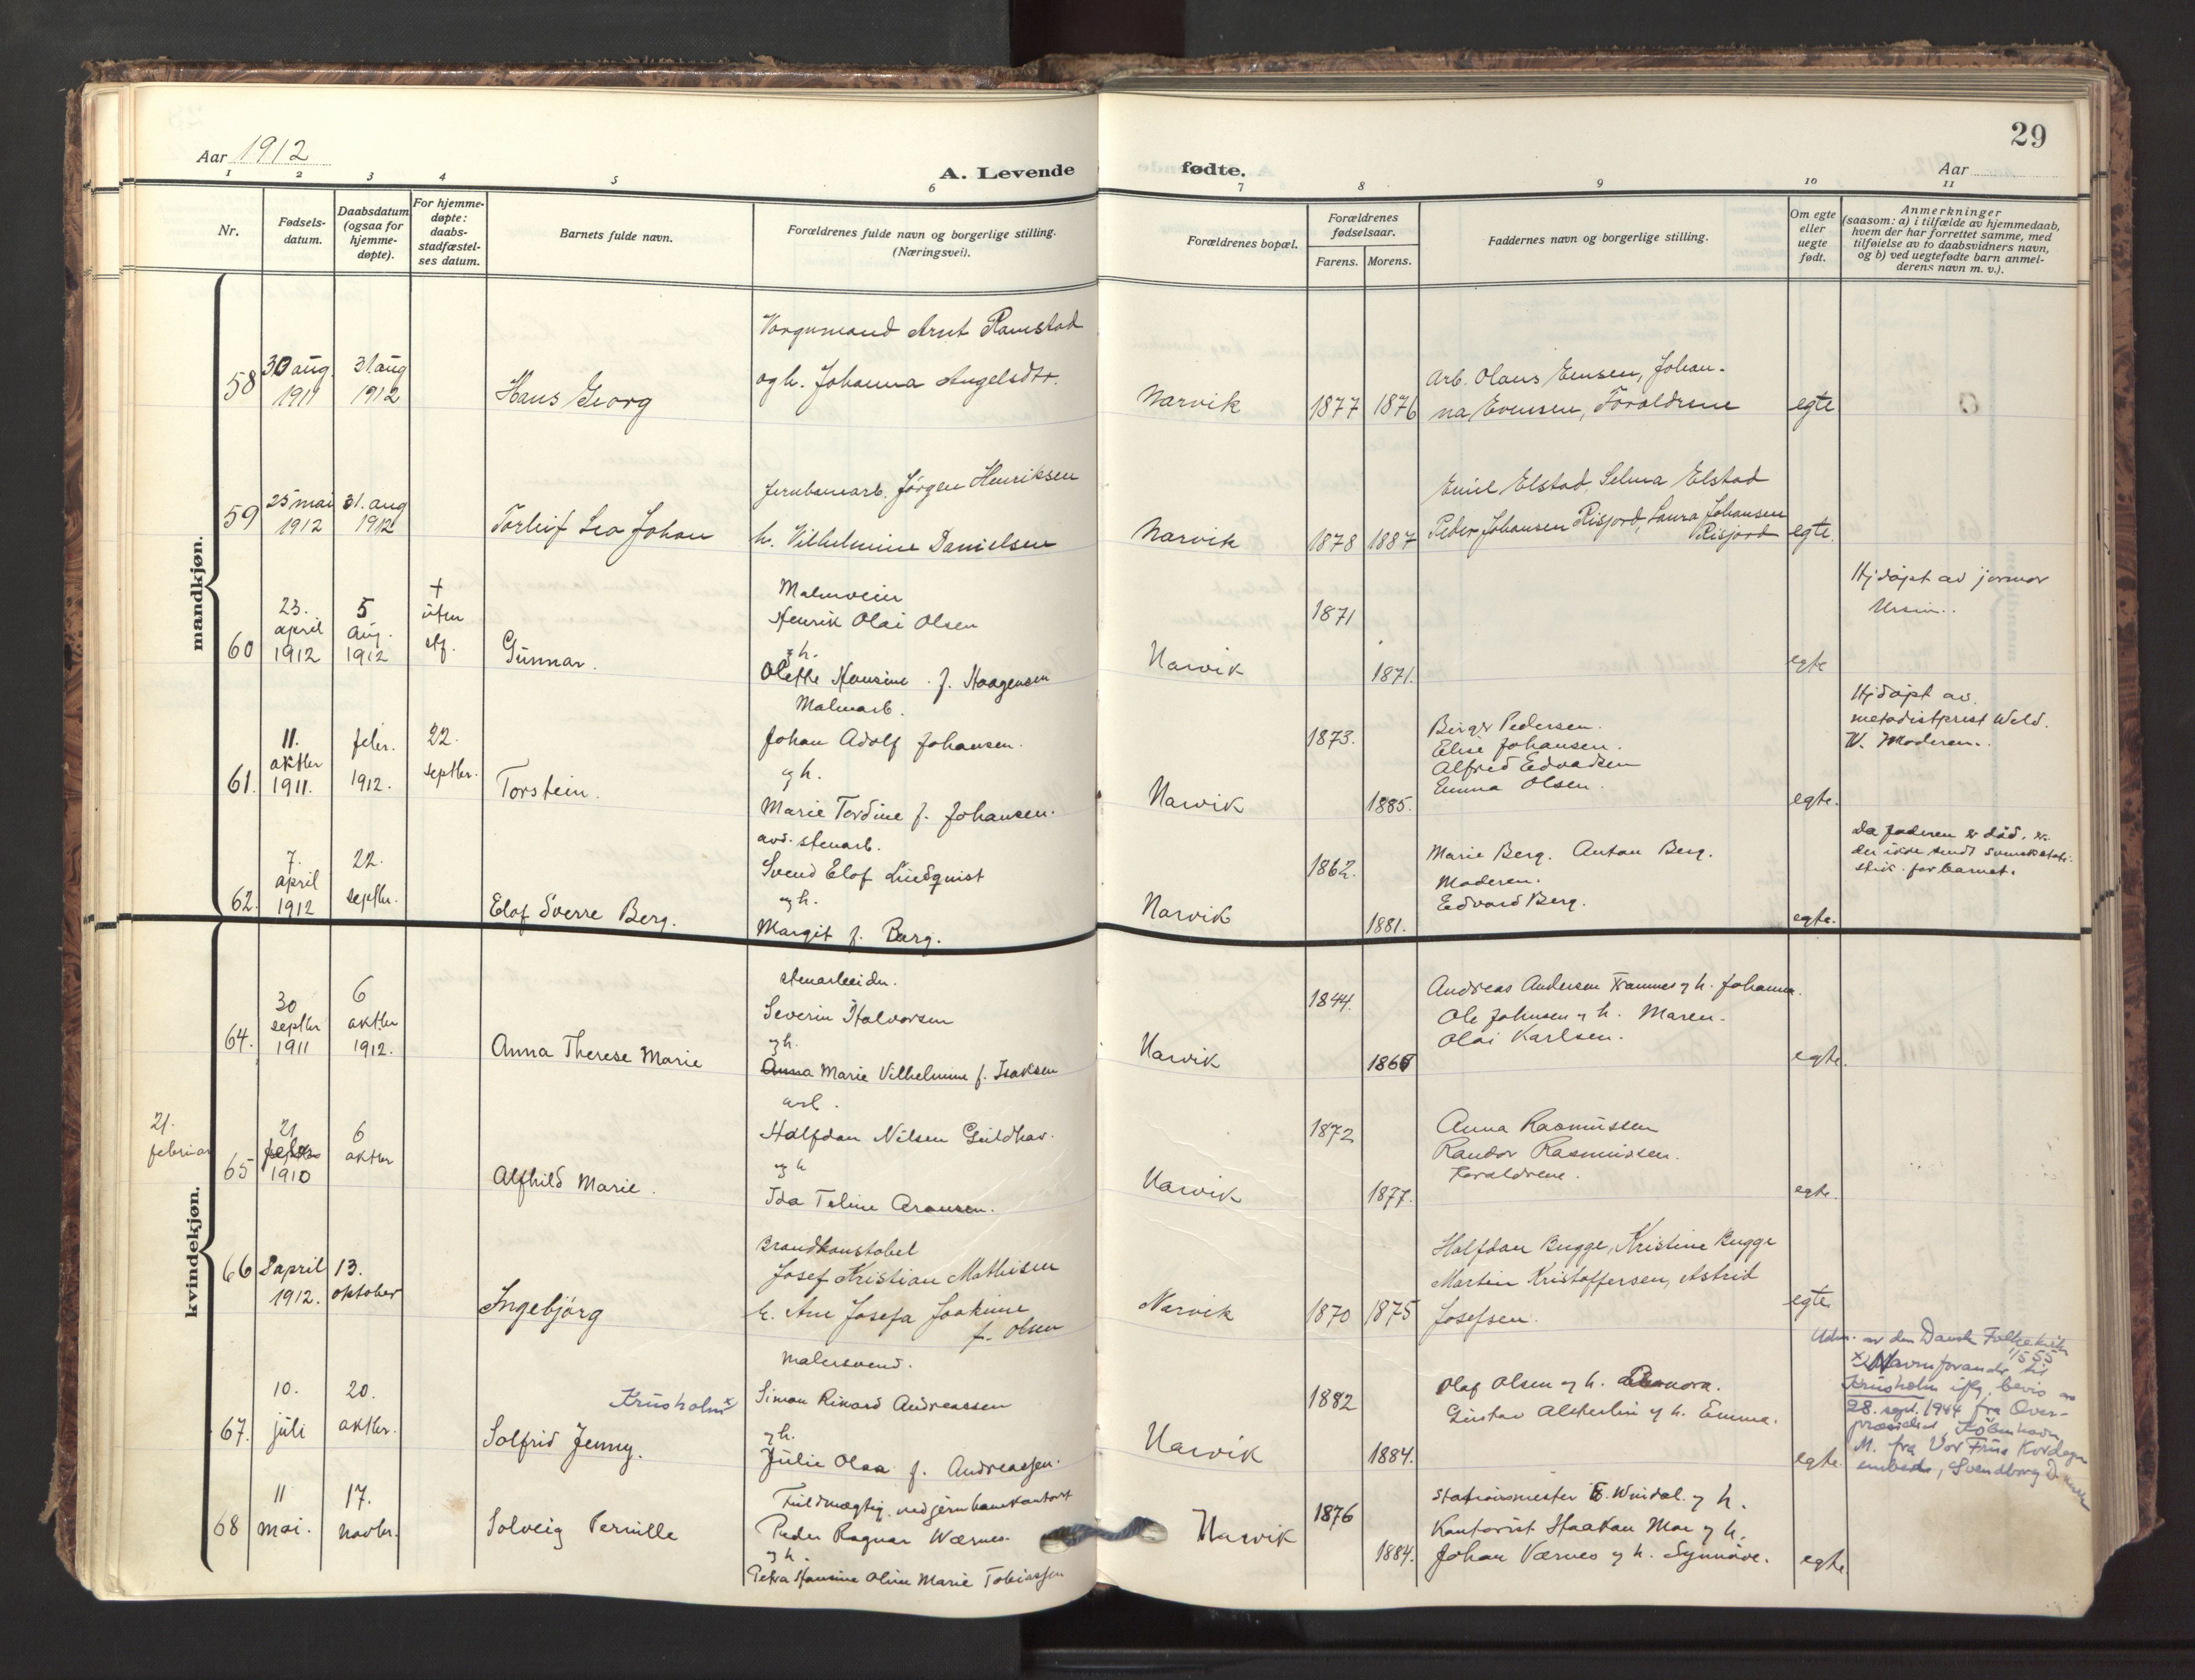 29
Aar 1912
A. Levende fødte.
Aar
1 2 3 4 5 6 7 8 9 10 11
Nr.
Fødsels-
datum.
Daabsdatum
(ogsaa for
hjemme-
døpte).
For hjemme-
døpte:
daabs-
stadfæstel-
ses datum.
Barnets fulde navn.
Forældrenes fulde navn og borgerlige stilling.
(Næringsvei).
Forældrenes bopæl.
Forældrenes
fødselsaar.
Farens. Morens.
Faddernes navn og borgerlige stilling.
Om egte
eller
uegte
født.
Anmerkninger
(saasom: a) i tilfælde av hjemmedaab,
hvem der har forrettet samme, med
tilføielse av to daabsvidners navn,
og b) ved uegtefødte barn anmel-
derens navn m. v.).
mandkjøn.
58
30 aug.
1911
31 aug
1912
Hans Georg
Vognmand Arnt Ramstad
og h. Johanna Angelsdtr.
Narvik
1877 1876
Arb. Olaus Evensen, Johan-
na Evensen, Forældrene
egte
59
25 mai
1912
31. aug
1912
Torleif Leo Johan
Jernbanearb. Jørgen Henriksen
h. Vilhelmine Danielsen
Narvik
1878 1887
Emil Elstad, Selma Elstad
Peder Johansen Risjord, Laura Johansen
Risjord
egte.
60
23.
april
1912
5
aug.
1912
†
uten
stf.
Gunnar.
Malmveier
Henrik Olai Olsen
& h.
Olethe Hansine f. Haagensen
Narvik
1871
1871.
egte
Hjdøpt av jormor
61.
11.
oktbr
1911.
febr.
1912.
22.
septbr.
Torstein.
Malmarb.
Johan Adolf Johansen.
og h.
Marie Tordine f. Johansen.
Narvik
1873.
1885.
Birger Pedersen.
Elise Johansen.
Alfred Edvadsen
Emma Olsen.
egte.
Hjdøpt av
metodistprest Weld.
V. Moderen.
62.
7.
april
1912
22.
septbr.
Elof Sverre Berg.
avd. stenarb.
Svend Elof Lindquist
og h.
Margit f. Berg.
Narvik
1862.
1881.
Marie Berg. Anton Berg.
Moderen.
Edvard Berg.
egte.
Da faderen er død, er
der ikke sendt svensk stati-
stik for barnet.
kvindekjøn.
64.
30
septbr
1911
6
oktbr
1912.
Anna Therese Marie
stenarbeider.
Severin Halvorsen
og h.
Anna Marie Vilhelmine f. Isaksen
Narvik
1844.
Andreas Andersen Framnes og h. Johanna.
Ole Johnsen og h. Maren.
Olai Karlsen.
egte.
21.
februar
65
21
1910
6
oktbr
Alfhild Marie.
arb.
Halfdan Nilsen Guldhav.
og h
Ida Teline Aronsen.
Narvik
1872
1877.
Anna Rasmussen
Randor Rasmussen.
Forældrene.
egte.
66
8 april
1912.
13.
oktober
Ingebjørg
Brandkonstabel
Josef Kristian Mathisen
h. Ane Josefa Joakime
f. Olsen
Narvik
1870 1875
Halfdan Bugge, Kristine Bugge
Martin Kristoffersen, Astrid
Josefsen.
egte
67.
10.
juli
20.
oktbr.
Krusholm x
Solfrid Jenny.
Malersvend.
Simon Rikard Andreassen
og h.
Julie Olaa f. Andreassen.
Narvik
1882
1884.
Olaf Olsen og h. Elenora.
Gustav Alcherlin og h. Emma.
egte.
Udm. av den Danske Folkekirke
1/5 55
x Navneforandr. til
Krusholm iflg. bevis av
28. sept. 1944 fra Over-
præsidiet, København,
M. fra Vor Frue Kordegn
embede, Svendborg Danmark
68
11
mai.
17.
novbr.
Solveig Pernille
Fuldmægtig ved jernbanekontoret
Peder Ragnar Wærnes.
og h.
Petra Hansine Oline Marie Tobiassen
Narvik
1876
1884.
Stationsmester E. Windal og h.
Kontorist Haakon Moe og h.
Johan Værnes og h. Synnøve.
egte.